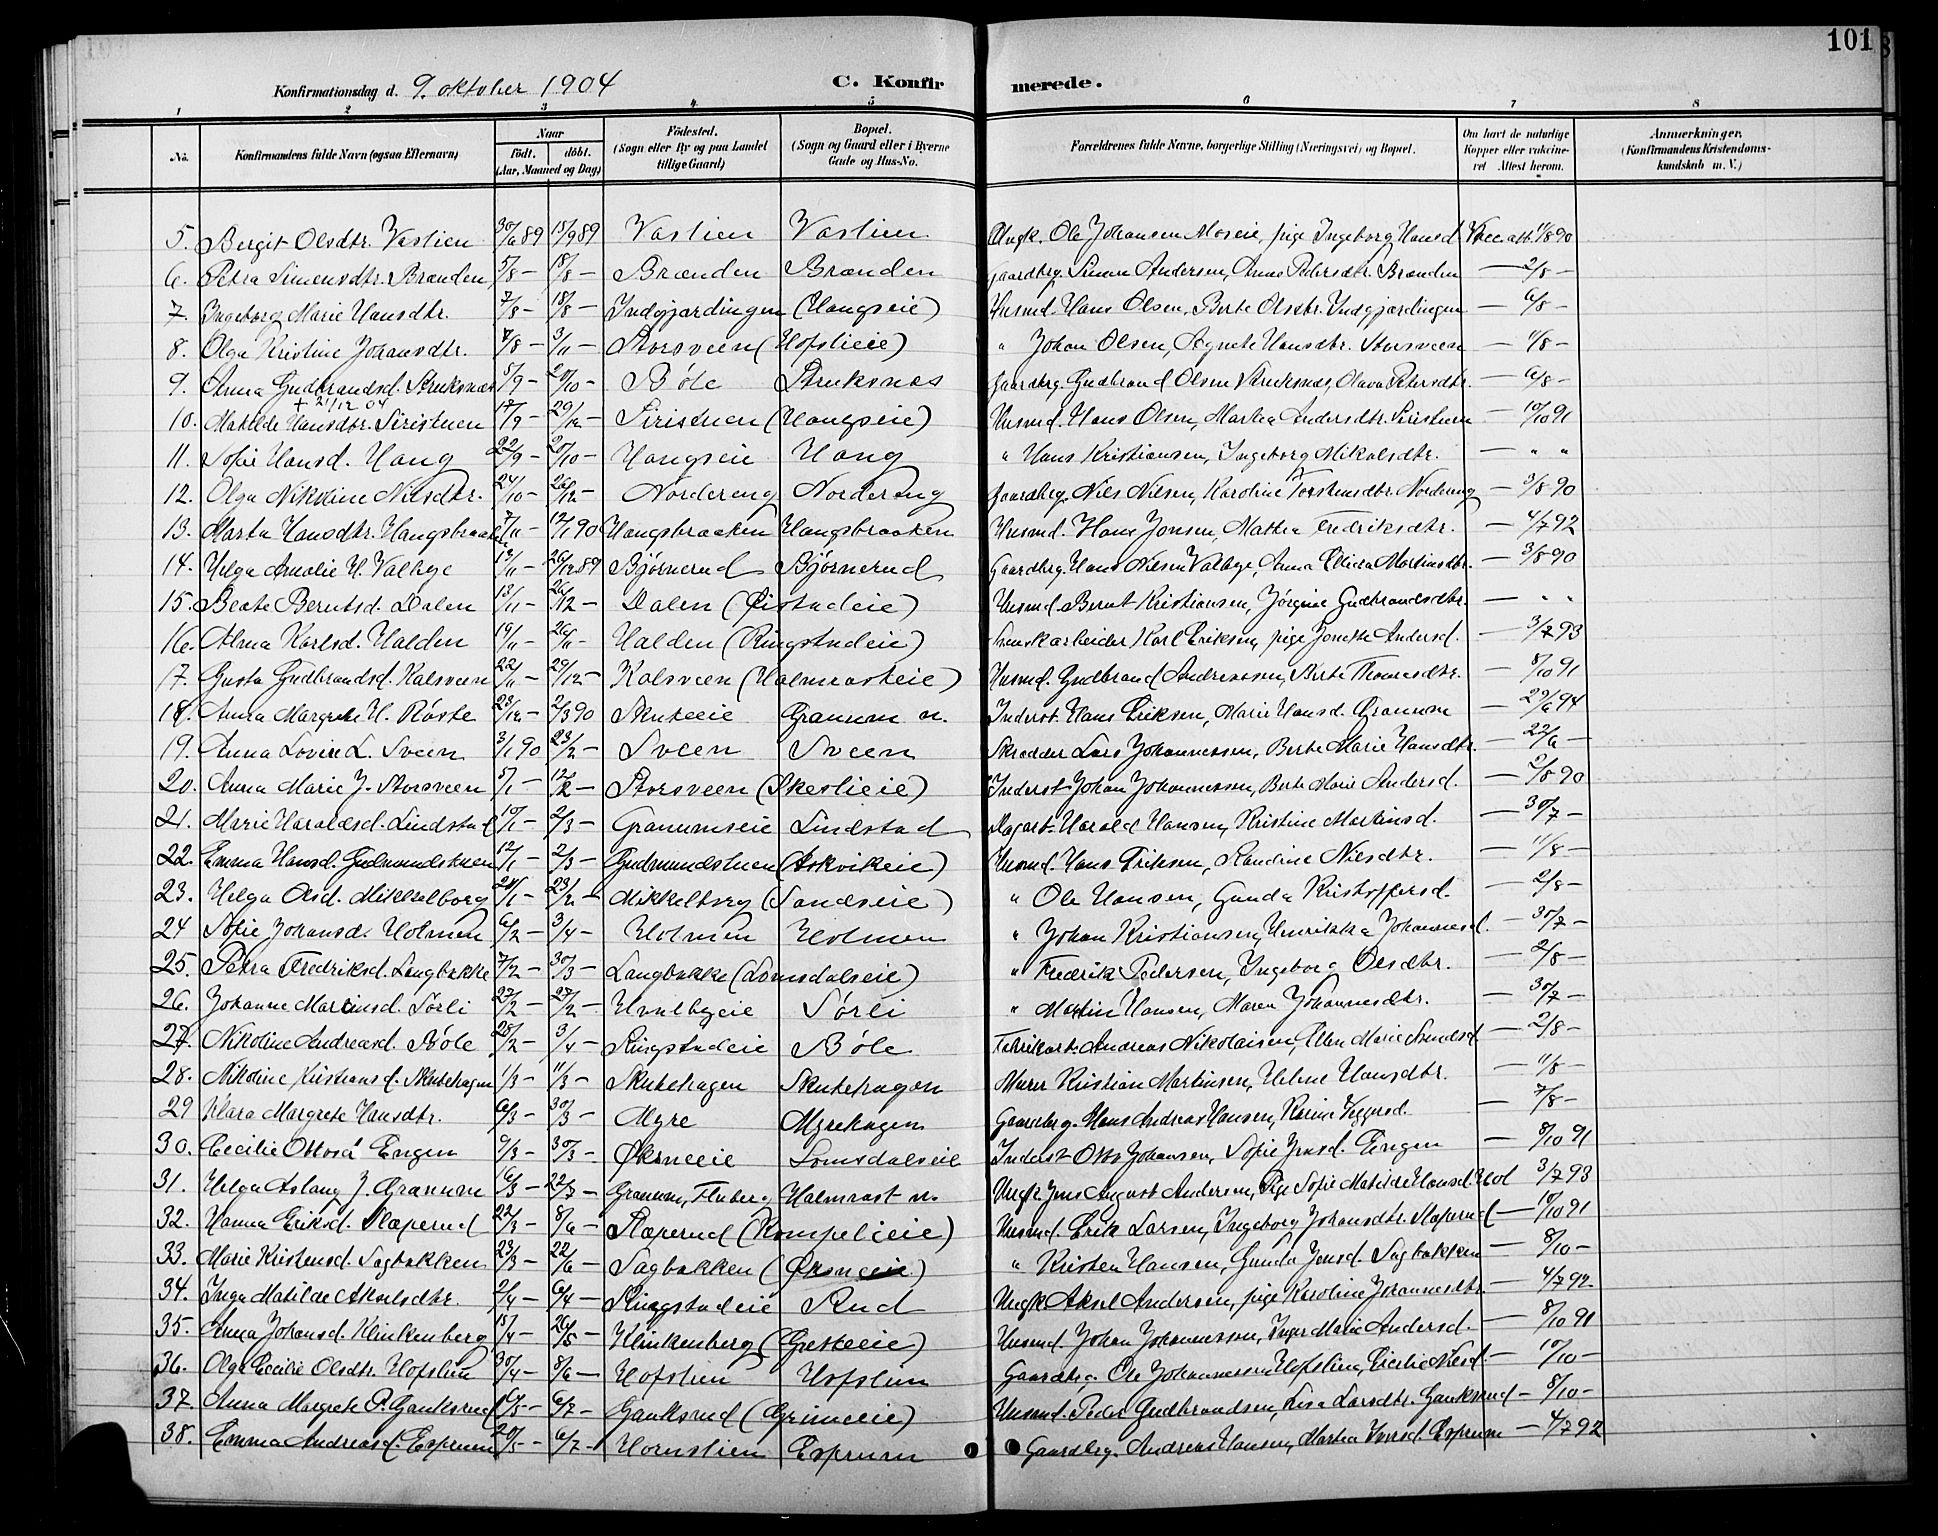 101
Konfirmationsdag d. 9. oktober 1904 C. Konfirmerede.
1 2 3 4 5 6 7 8
No. Konfirmandens fulde Navn (ogsaa Efternavn) Naar født. døbt. (Aar, Maaned og Dag) Fødested. (Sogn eller By og paa Landet tillige Gaard) Bopæl. (Sogn og Gaard eller i Byerne Gade og Hus-No.) Forældrenes fulde Navne, borgerlige Stilling (Næringsvei) og Bopæl. Om havt de naturlige Kopper eller vaccineret Attest herom. Anmerkninger. (Konfirmandens Kristendomskundskab m. V.)
5. Bergit Olsdtr. Vaslien 30/6 89 15/9 89 Vaslien Vaslien Ungk. Ole Johansen Moseie, pige Ingeborg Hansd. Vacc. att. 11/8 90
6. Petra Simensdtr. Brænden 5/8 – 18/8 – Brænden Brænden Gaardbrg. Simen Andersen, Anne Pedersdtr. Brænden – 2/8 –
7. Ingeborg Marie Hansdtr. 7/8 – 18/8 – Indgjærdingen (Haugseie) Husmd. Hans Olsen, Berte Olsdtr. Indgjærdingen – 6/8 –
8. Olga Kristine Johansdtr. 7/8 – 3/11 – Storsveen (Hofslieie) " Johan Olsen, Agnete Hansdtr. Storsveen – 4/8 –
9. Anna Gudbrandsd. Struksnæs 5/9 – 20/10 – Bøle Struksnæs Gaardbrg. Gudbrand Olsen Struksnæs, Olava Petersdtr. – 6/8 –
+ 21/12 04
10. Matilde Hansdtr. Siristuen 17/9 – 29/12 – Siristuen (Haugseie) Husmd. Hans Olsen, Marthea Andersdtr. Siristuen – 10/10 91
11. Sofie Hansd. Haug 22/9 – 20/10 – Haugseie Haug " Hans Kristiansen, Ingeborg Mikalsdtr. – " "
12. Olga Nikoline Nilsdtr. 24/10 – 26/12 – Nordereng Nordereng Gaardbrg. Nils Nilsen, Karoline Torstensdtr. Nordereng – 3/8 90
13. Marta Hansdtr. Haugsbraaten 7/11 – 12/1 90 Haugsbraaten Haugsbraaten Husmd. Hans Jonsen, Mathea Fredriksdtr. – 4/7 92
14. Helga Amalie H. Valbye 13/11 – 26/12 89 Bjørnerud Bjørnerud Gaardbrg. Hans Nilsen Valbye, Anna Elicia Martinsdtr. – 3/8 90
15. Beate Berntsd. Dalen 13/11 – 26/12 – Dalen (Øistadeie) Husmd. Bernt Kristiansen, Jørgine Gudbrandsdtr. – " "
16. Alma Karlsd. Halden 19/11 – 26/11 – Halden (Ringstadeie) Svensk arbeider Karl Eriksen, pige Jonette Andersd. – 3/7 93
17. Gusta Gudbrandsd. Kalsveen 22/11 – 29/12 – Kalsveen (Halmrasteie) Husmd. Gudbrand Andreassen, Berte Thomesdtr. – 8/10 91
18. Anna Margrete H. Røste 23/12 – 2/3 90 Skuteeie Granum n. Inderst. Hans Eriksen, Marie Hansd. Granum – 29/6 94
19. Anna Lovise L. Sveen 3/1 90 23/2 – Sveen Sveen Skrædder Lars Johannessen, Berte Marie Hansdtr. – 22/6 –
20. Anna Marie J. Storsveen 5/1 – 12/2 – Storsveen (Skeslieie) Inderst. Johan Johannessen, Berte Marie Andersd. – 2/8 90
21. Marie Haraldsd. Lindstad 10/1 – 2/3 – Granumseie Lindstad Dagarb. Harald Hansen, Kristine Martinsd. – 30/7 –
22. Emma Hansd. Gudmundstuen 12/1 – 2/3 – Gudmundstuen (Askvikeie) Husmd. Hans Eriksen, Randine Nilsdtr. – 11/8 –
23. Helga Olsd. Mikkelborg 20/1 – 23/2 – Mikkelborg (Sandseie) " Ole Hansen, Gunda Kristoffersd. – 2/8 –
24 Sofie Johansd. Holmen 6/2 – 3/4 – Holmen Holmen " Johan Kristiansen, Henrikka Johannesd. – 30/7 –
25. Petra Fredriksd. Langbakke 7/2 – 30/3 – Langbakke (Lomsdalseie) " Fredrik Pedersen, Ingeborg Olsdtr. – 2/8 –
26. Johanne Martinsd. Sørli 27/2 – 27/2 – Hvalbyeie Sørli " Martin Hansen, Maren Johannesdtr. – 30/7 –
27. Nikoline Andreasd. Bøle 28/2 – 3/4 – Ringstadeie Bøle Fabrikarb. Andreas Nikolaisen, Ellen Marie Amundsd. – 2/8 –
28. Nikoline Kristiansd. Skutehagen 1/3 – 11/3 – Skutehagen Skutehagen Murer Kristian Martinsen, Helene Hansdtr. – 11/8 –
29 Klara Margrete Hansdtr. 6/3 – 30/3 – Myre Myrehagen Gaardbrg. Hans Andreas Hansen, Karine Viggosd. – 7/8 –
30. Cecilie Ottosd. Engen 9/3 – 30/3 – Økneeie Lomsdalseie Inderst Otto Johansen, Sofie Jensd. Engen – 8/10 91
31. Helga Aslaug J. Granum 16/3 – 22/7 – Granum, Fluberg Halmrast n. Ungk. Jens August Andersen, Pige Sofie Matilde Hansd. Hol 3/7 93
32. Hanna Eriksd. Slæperud 22/3 – 8/6 – Slæperud (Kompelieie) Husmd. Erik Larsen, Ingeborg Johansdtr. Slæperud – 10/10 91
33. Marie Kristensd. Sagbakken 23/3 – 22/6 – Sagbakken (Økneeie) " Kristen Hansen, Gunda Jensd. Sagbakken – 8/10 –
34. Inga Matilde Akselsdtr. 2/4 – 6/4 – Ringstadeie Rud Ungk. Aksel Andersen, pige Karoline Johannesdtr. – 4/7 92
35. Anna Johansd. Klinkenberg 15/4 – 26/5 – Klinkenberg (Gresteeie) Husmd. Johan Johannessen, Inger Marie Andersd. – 8/10 91
36. Olga Cecilie Olsdtr. Hofslien 30/4 – 8/6 – Hofslien Hofslien Gaardbrg. Ole Johannessen Hofslien, Cicilie Nilsd. – 10/10 –
37. Anna Margrete P. Gauksrud 16/5 – 6/7 – Gauksrud (Grimeeie) Husmd. Peder Gudbrandsen, Lisa Larsdtr. Gauksrud – 8/10 –
38. Emma Andreasd. Esprum 20/5 – 6/7 – Hornslien Esprum Gaardbrg. Andreas Hansen, Marthea Iversd. Esprum – 4/7 92